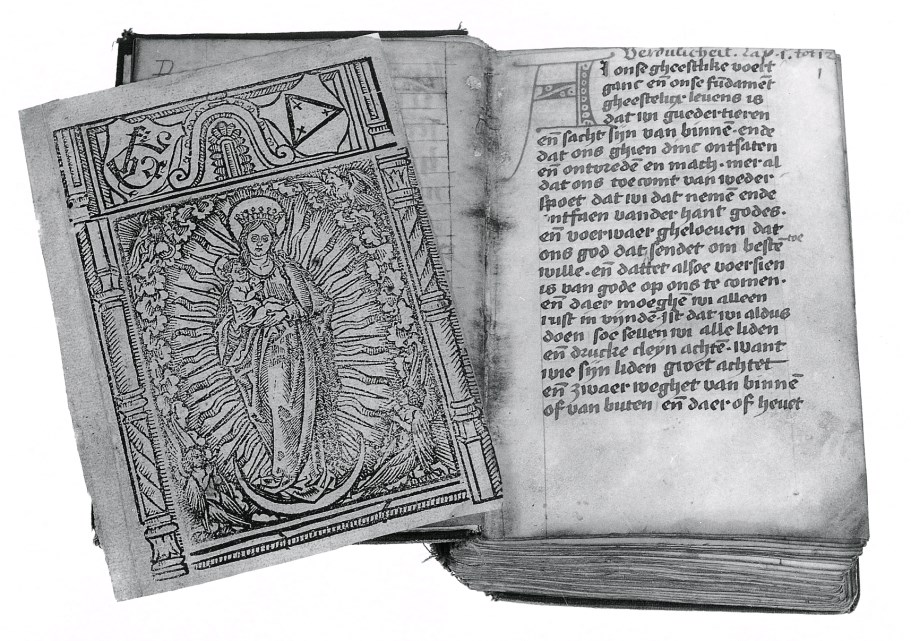 Verduldicheit. Cap. 1. tot 12
1
Al onse gheestlike voert
ganc en̄ onse fūdamēt
gheestelijx leuens is
dat wi guedertieren
en̄ sacht sijn van binnē. ende
dat ons ghien dinc ontsaten
en̄ ontvreden en mach. mer al
dat ons toe comt van weder
spoet dat wi dat nemē ende
ontfaen vander hant godes.
en̄ voerwaer gheloeuen dat
ons god dat sendet om bestē toe
wille. en̄ dattet alsoe voersien
is van gode op ons te comen.
en̄ daer moeghē wi alleen
rust in vijndē. Ist dat wi aldus
doen soe sellen wi alle liden
en̄ drucke cleyn achtē. want
wie sijn liden groet achtet
en̄ zwaer weghet van binnē
of van buten en̄ daer of heuet